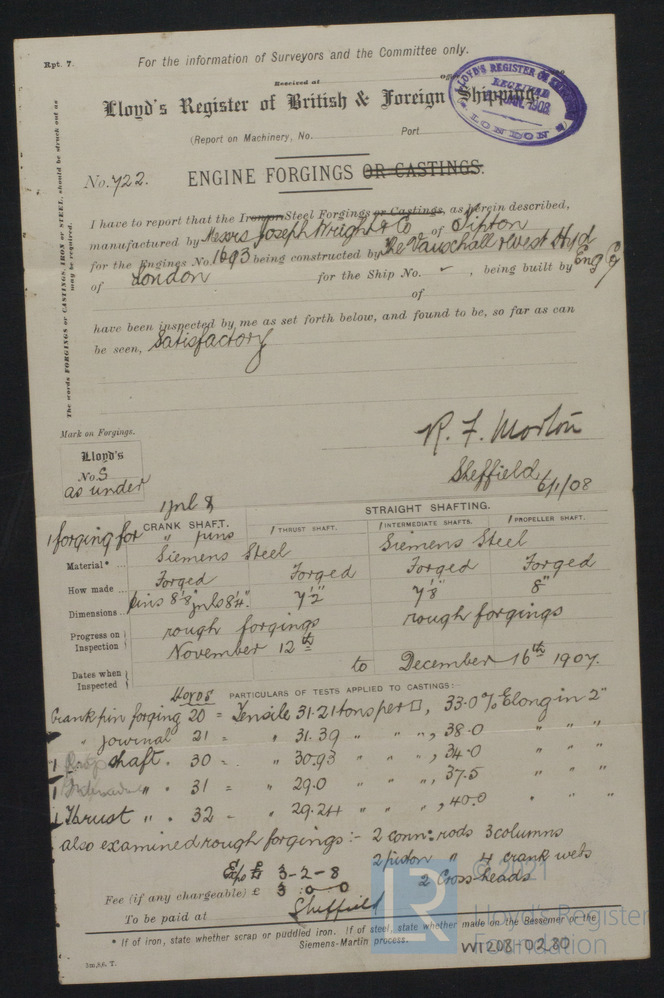 Rpt. 7.
For the information of Surveyors and the Committee only.
Received at
Lloyd's Register of British & Foreign Shipping.
LLOYD'S REGISTER OF SHIPPING
RECEIVED
JAN. 1908
LONDON
(Report on Machinery, No. Port
No. 722.
ENGINE FORGINGS OR CASTINGS.
The words FORGINGS or CASTINGS, IRON or STEEL, should be struck out as may be required.
I have to report that the Iron or Steel Forgings or Castings, as herein described,
manufactured by Messrs Joseph Wright & Co of Tipton
for the Engines No. 1693 being constructed by The Vauxhall & West Hyd Eng Co
of London for the Ship No. , being built by
of
have been inspected by me as set forth below, and found to be, so far as can
be seen, Satisfactory
Mark on Forgings.
Lloyd's
No. S
as under
R. F. Morton
Sheffield 6/1/08
1 forging for
1 jnl &
" pins
CRANK SHAFT.
1 THRUST SHAFT.
STRAIGHT SHAFTING.
1 INTERMEDIATE SHAFTS.
1 PROPELLER SHAFT.
Material* Siemens Steel Siemens Steel
How made Forged Forged Forged Forged
Dimensions pins 8⅛" jnls 8¼". 7½" 7⅛" 8"
Progress on Inspection rough forgings rough forgings
Dates when Inspected November 12th to December 16th 1907.
PARTICULARS OF TESTS APPLIED TO CASTINGS:—
Crank pin forging 20 = Tensile 31.21 tons per □, 33.0% Elong in 2"
" journal 21 = " 31.39 " " , 38.0 " " "
1 Prop shaft " 30 = " 30.93 " " , 34.0 " " "
1 " " 31 = " 29.0 " " , 37.5 " " "
1 Thrust " " 32 = " 29.24 " " , 40.0 " " "
also examined rough forgings :- 2 conn: rods 3 columns
2 piston " 4 crank webs
2 Cross heads
Exps £ 3-2-8
Fee (if any chargeable) £ 3 : 0 - 0
To be paid at Sheffield
* If of iron, state whether scrap or puddled iron. If of steel, state whether made on the Bessemer or the
Siemens-Martin process.
W1208-0280
© 2021
LR
Lloyd's Register
Foundation